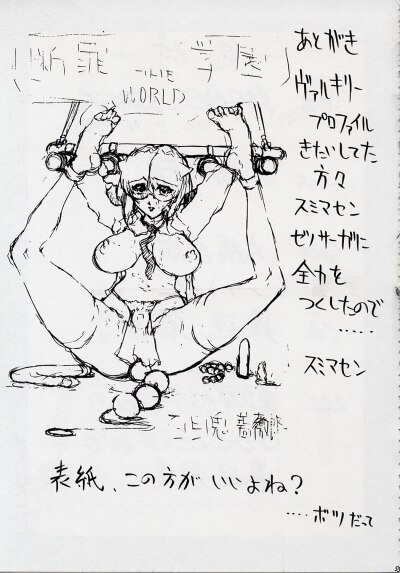 あとがき
ヴァルキリー
プロファイル
きたいしてた
方々
スミマセン
ゼノサーガに
全力を
つくしたので
‥‥‥
スミマセン
断罪
THE
WORLD
表紙、この方がいいよね?
‥‥ボツだって